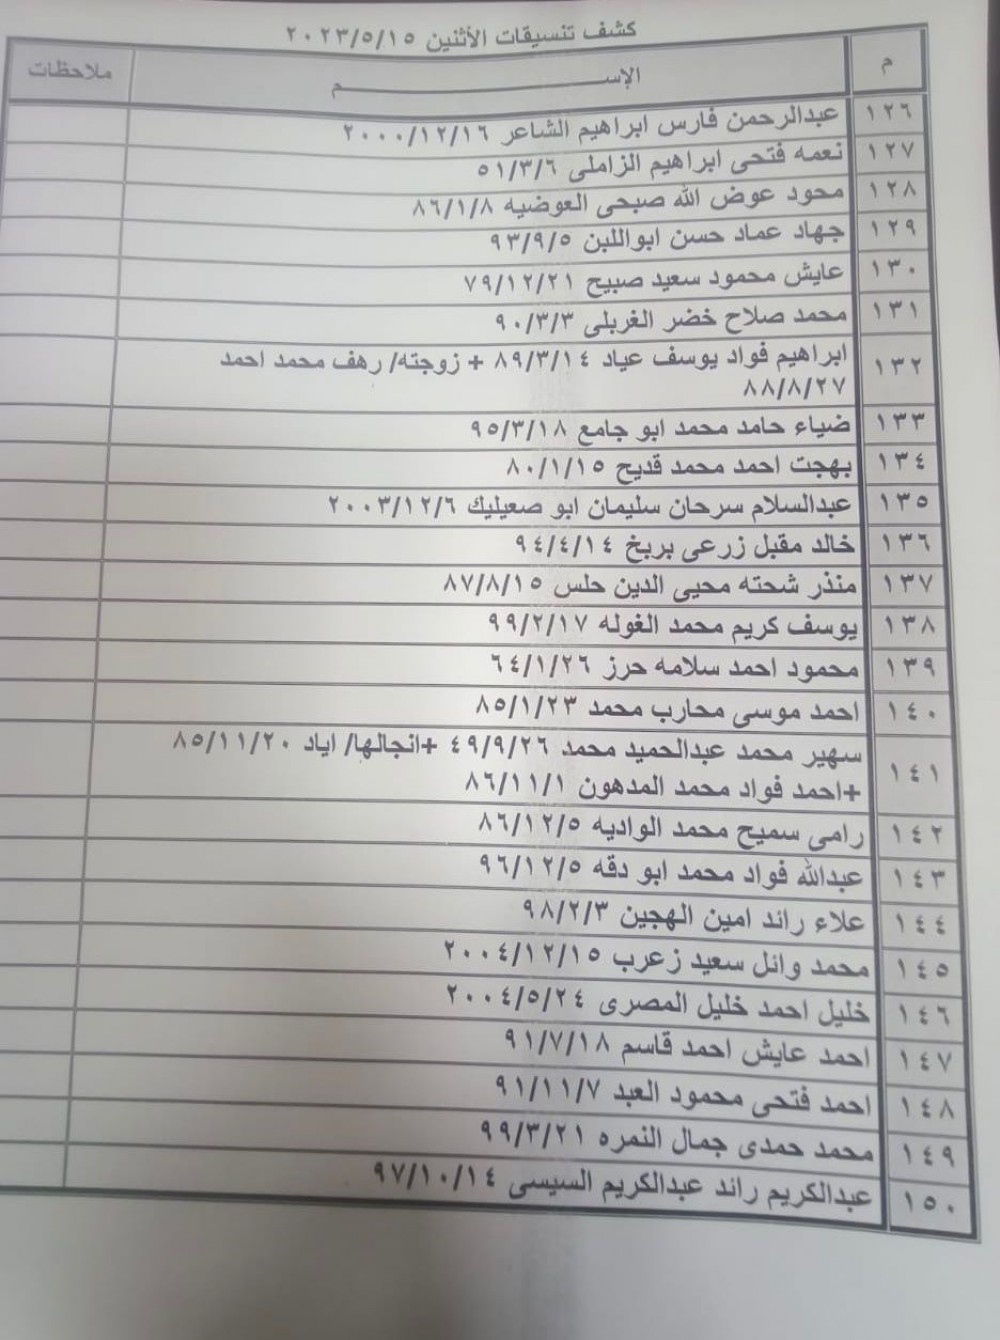 كشف تنسيقات الأثنين ٢٠٢٣/٥/١٥
م الإســـــم ملاحظات
١٢٦ عبدالرحمن فارس ابراهيم الشاعر ٢٠٠٠/١٢/١٦
١٢٧ نعمه فتحى ابراهيم الزاملى ٥١/٣/٦
١٢٨ محود عوض الله صبحى العوضيه ٨٦/١/٨
١٢٩ جهاد عماد حسن ابواللبن ٩٣/٩/٥
١٣٠ عايش محمود سعيد صبيح ٧٩/١٢/٢١
١٣١ محمد صلاح خضر الغربلى ٩٠/٣/٣
١٣٢ ابراهيم فواد يوسف عياد ٨٩/٣/١٤ + زوجته/ رهف محمد احمد
٨٨/٨/٢٧
١٣٣ ضياء حامد محمد ابو جامع ٩٥/٣/١٨
١٣٤ بهجت احمد محمد قديح ٨٠/١/١٥
١٣٥ عبدالسلام سرحان سليمان ابو صعيليك ٢٠٠٣/١٢/٦
١٣٦ خالد مقبل زرعى بربخ ٩٤/٤/١٤
١٣٧ منذر شحته محيى الدين حلس ٨٧/٨/١٥
١٣٨ يوسف كريم محمد الغوله ٩٩/٢/١٧
١٣٩ محمود احمد سلامه حرز ٦٤/١/٢٦
١٤٠ احمد موسى محارب محمد ٨٥/١/٢٣
١٤١ سهير محمد عبدالحميد محمد ٤٩/٩/٢٦ +انجالها/ اياد ٨٥/١١/٢٠
+احمد فواد محمد المدهون ٨٦/١١/١
١٤٢ رامى سميح محمد الواديه ٨٦/١٢/٥
١٤٣ عبدالله فواد محمد ابو دقه ٩٦/١٢/٥
١٤٤ علاء رائد امين الهجين ٩٨/٢/٣
١٤٥ محمد وائل سعيد زعرب ٢٠٠٤/١٢/١٥
١٤٦ خليل احمد خليل المصرى ٢٠٠٤/٥/٢٤
١٤٧ احمد عايش احمد قاسم ٩١/٧/١٨
١٤٨ احمد فتحى محمود العبد ٩١/١١/٧
١٤٩ محمد حمدى جمال النمره ٩٩/٣/٢١
١٥٠ عبدالكريم رائد عبدالكريم السيسى ٩٧/١٠/١٤